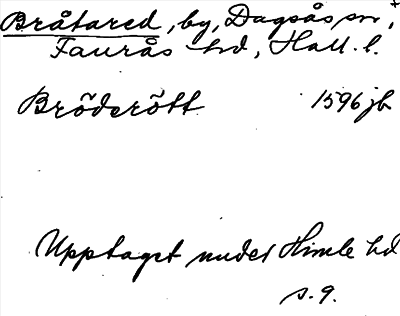 Bråtared, by, Dagsås sn,+
Faurås hd, Hall. l.
Bröderött 1596 jb
Upptaget under Himle hd
s. 9.